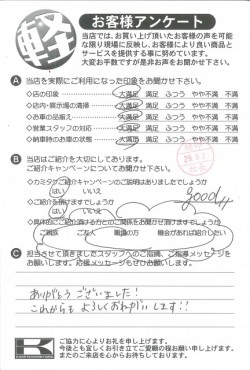 軽
お客様アンケート
当店では、お買い上げ頂いたお客様の声を可能
な限り現場に反映し、お客様により良い商品と
サービスを提供する事に努めています。
大変お手数ですが是非お声をお聞かせ下さい。
A 当店を実際にご利用になった印象をお聞かせ下さい。
◇店の印象 大満足 満足 ふつう やや不満 不満
◇店内・展示場の清掃 大満足 満足 ふつう やや不満 不満
◇お車の品揃え 大満足 満足 ふつう やや不満 不満
◇営業スタッフの対応 大満足 満足 ふつう やや不満 不満
◇納車時のお車の状態 大満足 満足 ふつう やや不満 不満
B 当店はご紹介を大切にしております。
ご紹介キャンペーンについてお聞かせ下さい。
◇カミタのご紹介キャンペーンのご説明はありましたでしょうか
はい いいえ
◇ご紹介を頂けますでしょうか
はい いいえ
good!!
ご親戚 ご友人 職場の方 機会があれば紹介したい
C 担当させて頂きましたスタッフへのご指摘、ご指導メッセージを
お願いします。応援メッセージもぜひお願いします。
ありがとうございました!
これからもよろしくおねがいします!!
K
ご協力に心よりお礼を申し上げます。
今後とも宜しくお引き立てご愛顧の程お願い申し上げます。
またのご来店を心からお待ちしております。